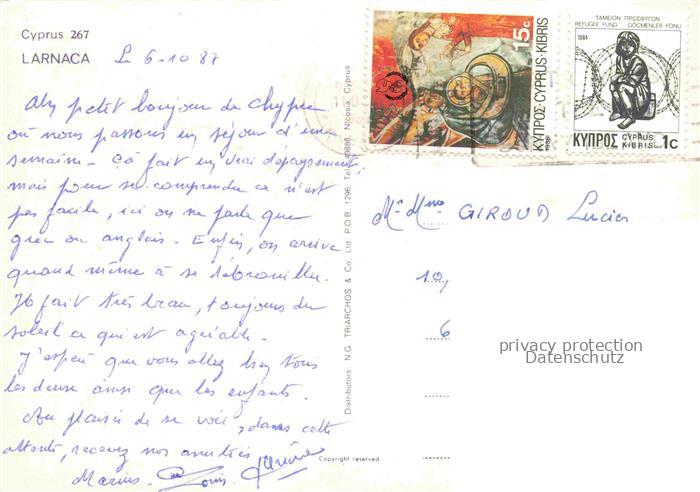 Cyprus 267
LARNACA
Le 6-10-87
petit bonjour de Chypre
où nous passons un séjour d'une
semaine - ça fait un vrai dépaysement,
mais pour se comprendre ce n'est
pas facile, ici on ne parle que
grec ou anglais - Enfin, on arrive
quand même à se débrouiller.
Il fait très beau, toujours du
soleil ce qui est agréable -
J'espère que vous allez bien tous
les deux ainsi que les enfants.
Au plaisir de se voir, dans cette
attente, recevez nos amitiés
Marius - Louis
Distributors: N.G. TRIARCHOS & Co. Ltd. P.O.B. 1296, Tel. 49886, Nicosia, Cyprus
Copyright reserved
15c
ΚΥΠΡΟΣ CYPRUS·KIBRIS
ΤΑΜΕΙΟΝ ΠΡΟΣΦΥΓΩΝ
REFUGEE FUND GÖÇMENLER FONU
1984
ΚΥΠΡΟΣ CYPRUS KIBRIS 1c
Mr Mme GIROUD Lucien
10,
6
privacy protection
Datenschutz